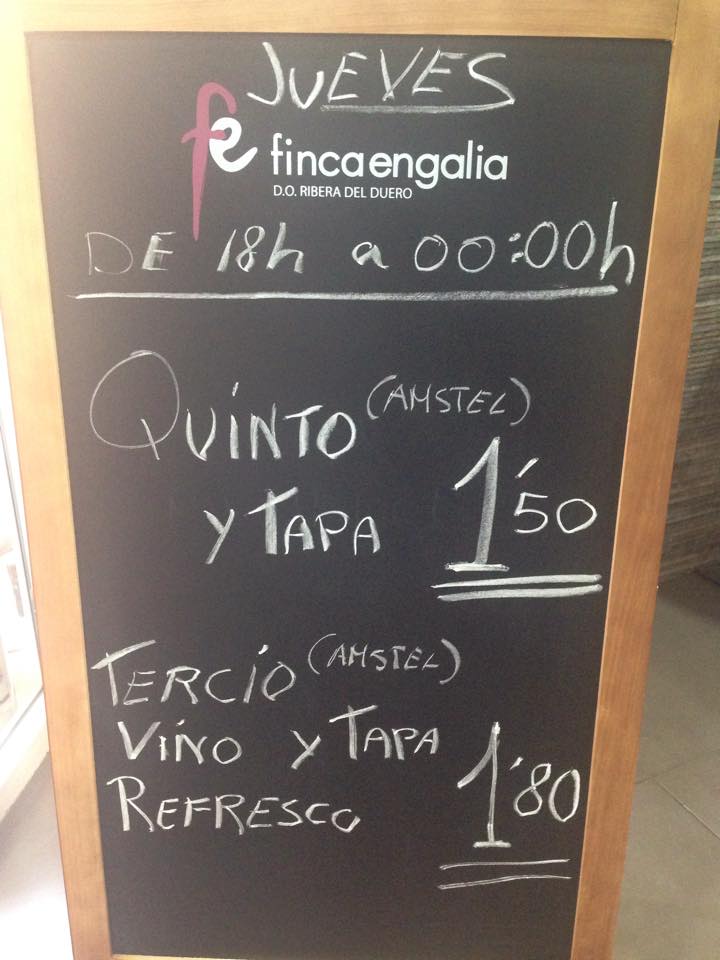 JUEVES
fe fincaengalia
D.O. RIBERA DEL DUERO
DE 18h a 00:00h
QUINTO (AMSTEL)
y TAPA 1'50
TERCIO (AMSTEL)
VINO y TAPA
REFRESCO 1'80